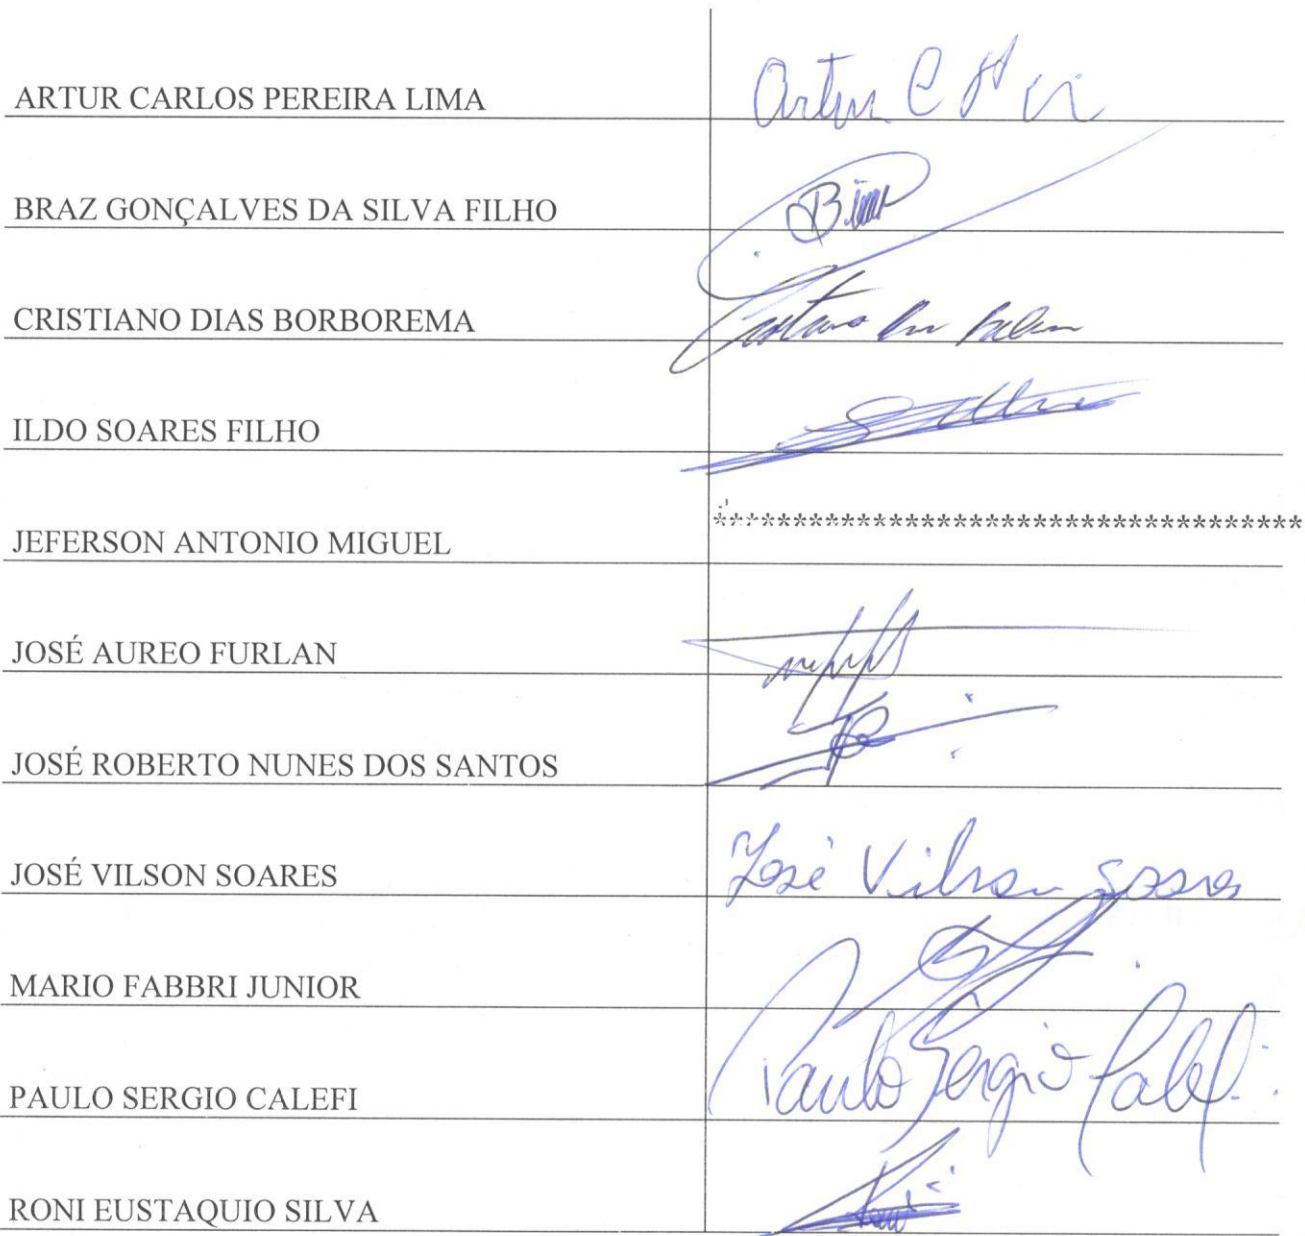 ARTUR CARLOS PEREIRA LIMA Artur C
BRAZ GONÇALVES DA SILVA FILHO
CRISTIANO DIAS BORBOREMA
ILDO SOARES FILHO
JEFERSON ANTONIO MIGUEL *************************************
JOSÉ AUREO FURLAN
JOSÉ ROBERTO NUNES DOS SANTOS
JOSÉ VILSON SOARES José Vilson Soares
MARIO FABBRI JUNIOR
PAULO SERGIO CALEFI Paulo Sergio Calefi
RONI EUSTAQUIO SILVA